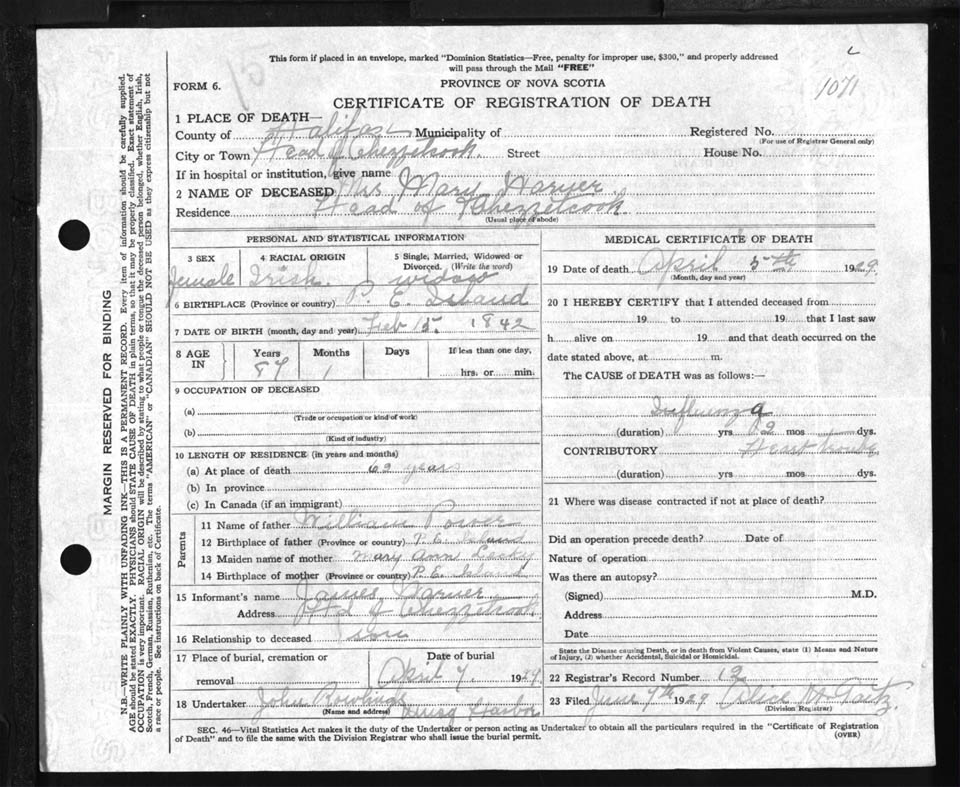 This form if placed in an envelope, marked "Dominion Statistics—Free, penalty for improper use, $300," and properly addressed
will pass through the Mail "FREE"
1071
FORM 6.
PROVINCE OF NOVA SCOTIA
CERTIFICATE OF REGISTRATION OF DEATH
1 PLACE OF DEATH—
County of Halifax Municipality of Registered No.
(For use of Registrar General only)
City or Town Head of Chezzetcook. Street House No.
If in hospital or institution, give name
2 NAME OF DECEASED Mrs Mary
Residence Head of Chezzetcook
(Usual place of abode)
PERSONAL AND STATISTICAL INFORMATION
3 SEX
4 RACIAL ORIGIN
5 Single, Married, Widowed or
Divorced. (Write the word)
Female Irish. widow
6 BIRTHPLACE (Province or country) P. E. Island
7 DATE OF BIRTH (month, day and year) Feb 15. 1842
8 AGE IN
Years Months Days If less than one day,
87 1 hrs. or min.
9 OCCUPATION OF DECEASED
(a)
(Trade or occupation or kind of work)
(b)
(Kind of industry)
10 LENGTH OF RESIDENCE (in years and months)
(a) At place of death 62 years
(b) In province
(c) In Canada (if an immigrant)
Parents
11 Name of father William Power
12 Birthplace of father (Province or country) P. E. Island
13 Maiden name of mother Mary Ann
14 Birthplace of mother (Province or country) P. E. Island
15 Informant's name James
Address Hd of Chezzetcook
16 Relationship to deceased son
17 Place of burial, cremation or
removal
Date of burial
April 7. 1929
18 Undertaker John
(Name and address)
MEDICAL CERTIFICATE OF DEATH
19 Date of death April 5th 1929.
(Month, day and year)
20 I HEREBY CERTIFY that I attended deceased from
19 to 19 that I last saw
h alive on 19 and that death occurred on the
date stated above, at m.
The CAUSE of DEATH was as follows:—
Influenza
(duration) yrs 2 mos dys.
CONTRIBUTORY Heart
(duration) yrs. mos. dys.
21 Where was disease contracted if not at place of death?
Did an operation precede death? Date of
Nature of operation
Was there an autopsy?
(Signed) M.D.
Address
Date
State the Disease causing Death, or in death from Violent Causes, state (1) Means and Nature
of Injury, (2) whether Accidental, Suicidal or Homicidal.
22 Registrar's Record Number 12
23 Filed June 7th 1929 Alice
(Division Registrar)
SEC. 46—Vital Statistics Act makes it the duty of the Undertaker or person acting as Undertaker to obtain all the particulars required in the "Certificate of Registration
of Death" and to file the same with the Division Registrar who shall issue the burial permit. (OVER)
MARGIN RESERVED FOR BINDING
N.B.—WRITE PLAINLY WITH UNFADING INK—THIS IS A PERMANENT RECORD. Every item of information should be carefully supplied.
AGE should be stated EXACTLY. PHYSICIANS should STATE CAUSE OF DEATH in plain terms, so that it may be properly classified. Exact statement of
OCCUPATION is very important. RACIAL ORIGIN will be described by stating to what people or tongue the deceased person belonged, whether English, Irish,
Scotch, French, German, Russian, Ruthenian, etc. The terms "AMERICAN" or "CANADIAN" SHOULD NOT BE USED as they express citizenship but not
a race or people. See instructions on back of Certificate.